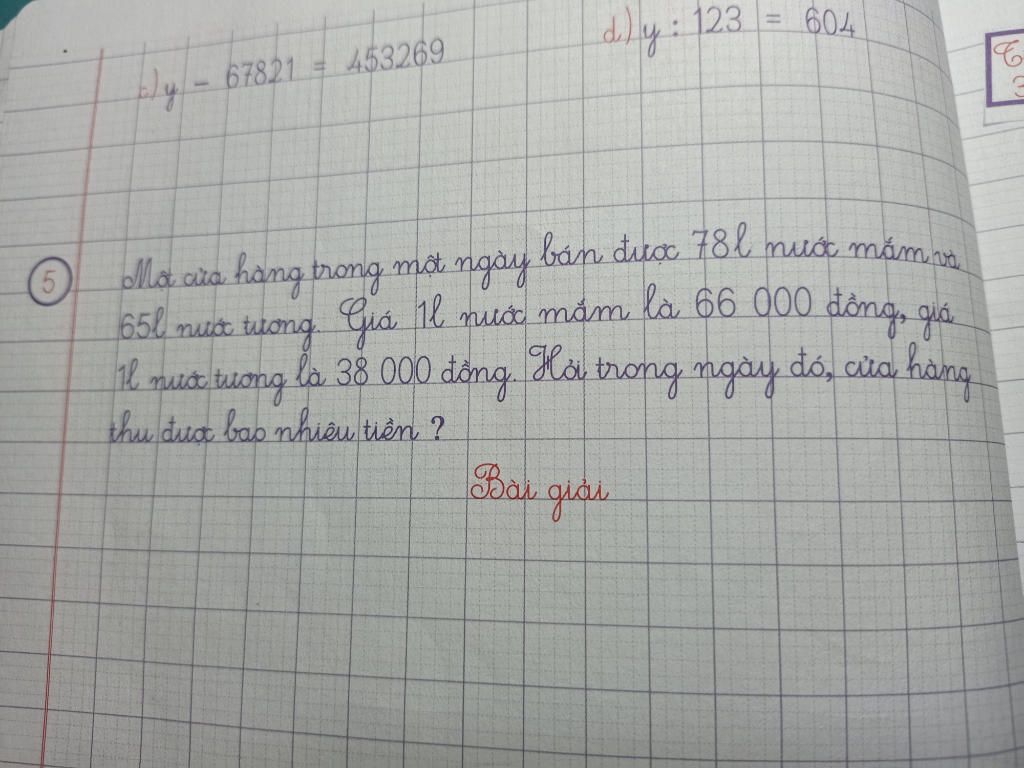 c) y - 67821 = 453269
d) y : 123 = 604
5
Một cửa hàng trong một ngày bán được 78l nước mắm và
65l nước tương. Giá 1l nước mắm là 66 000 đồng, giá
1l nước tương là 38 000 đồng. Hỏi trong ngày đó, cửa hàng
thu được bao nhiêu tiền ?
Bài giải